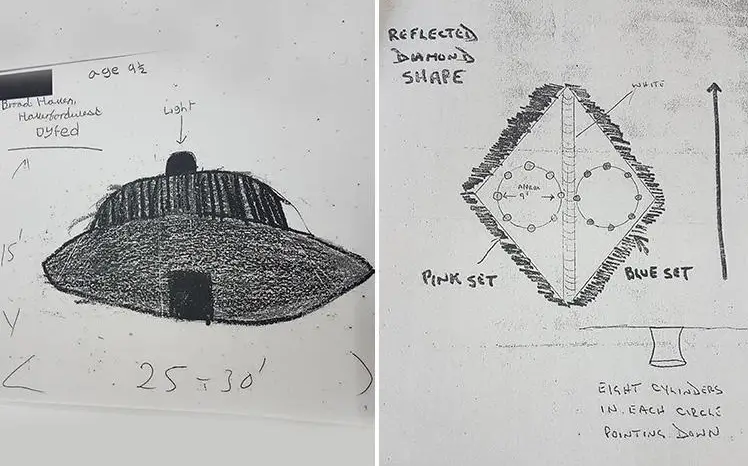 age 9½
Broad Haven,
Haverfordwest
Dyfed
Light
15'
25 - 30'
REFLECTED
DIAMOND
SHAPE
WHITE
9"
PINK SET
BLUE SET
EIGHT CYLINDERS
IN EACH CIRCLE
POINTING DOWN